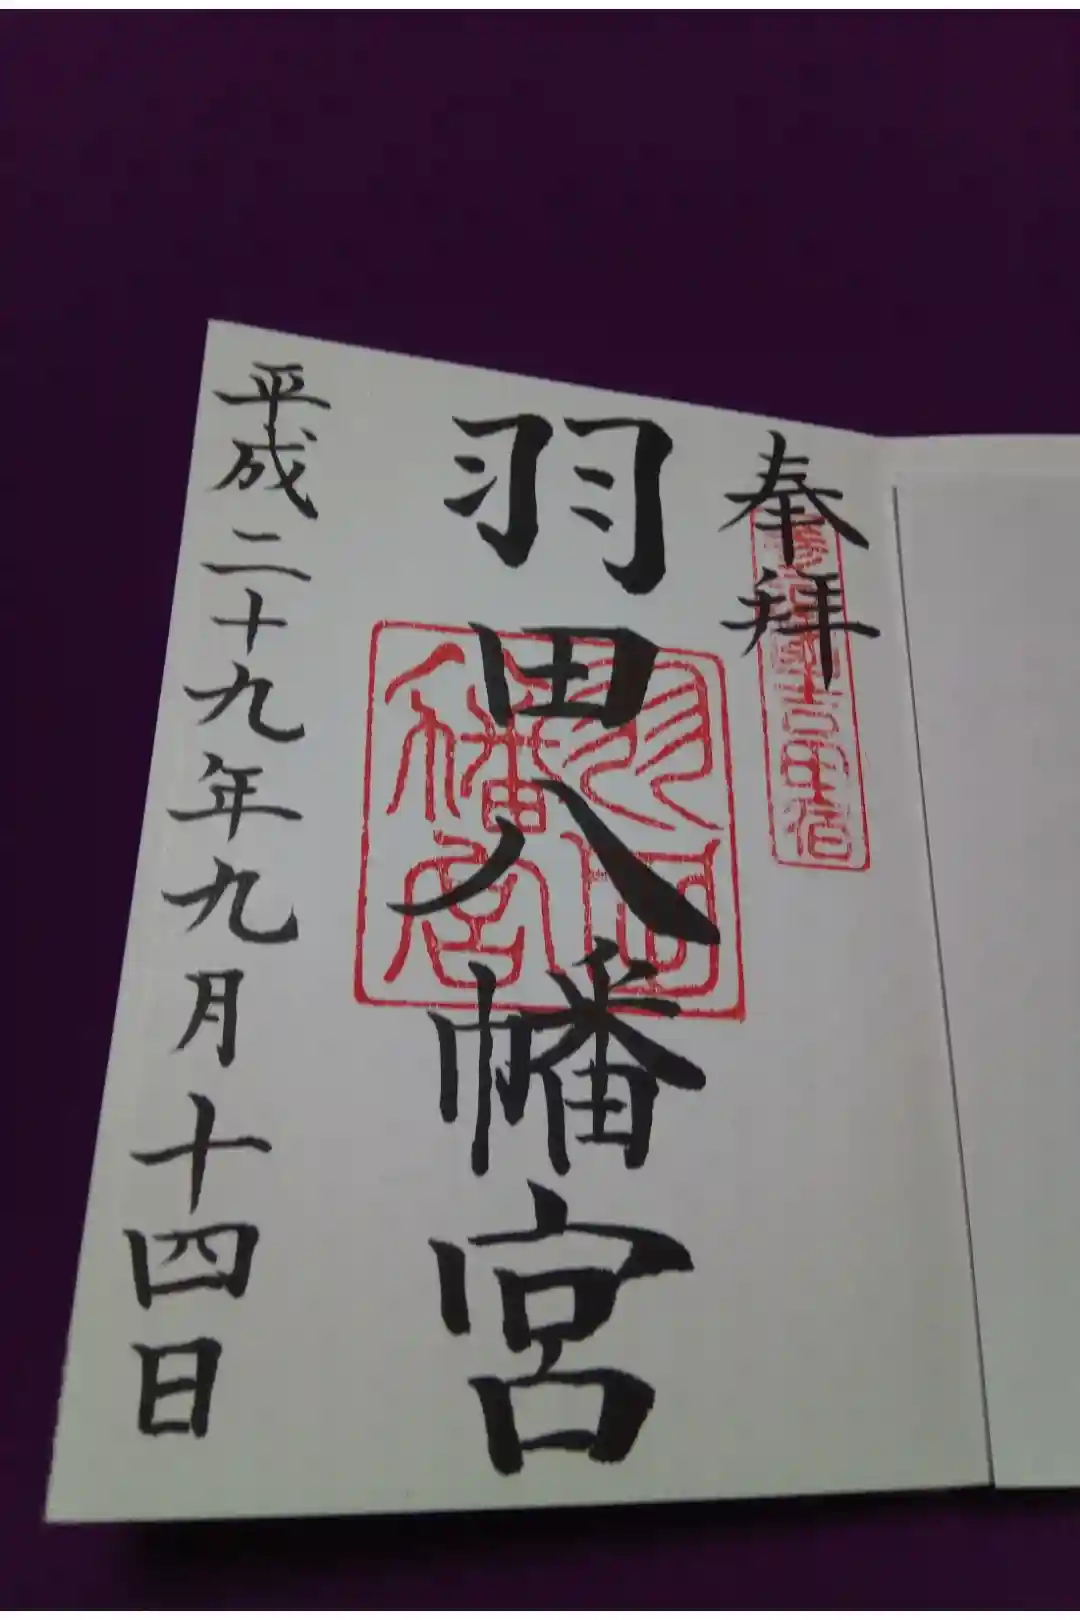 奉拝
羽田八幡宮
羽田八幡宮
平成二十九年九月十四日